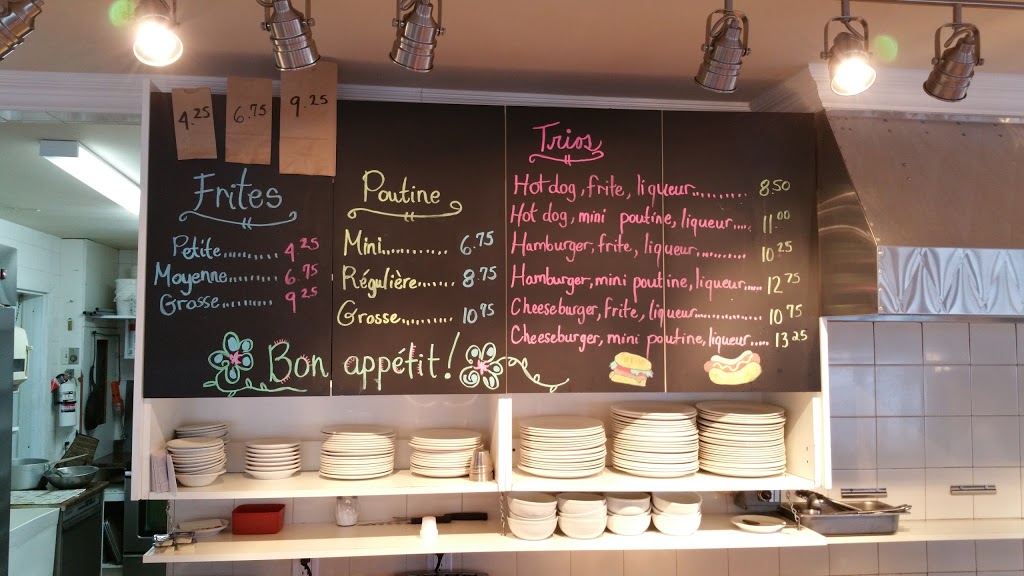 4.25
6.75
9.25
Frites
Petite......... 4.25
Moyenne........ 6.75
Grosse......... 9.25
Poutine
Mini.......... 6.75
Régulière...... 8.75
Grosse......... 10.95
Trios
Hot dog, frite, liqueur......... 8.50
Hot dog, mini poutine, liqueur.... 11.00
Hamburger, frite, liqueur......... 10.25
Hamburger, mini poutine, liqueur..... 12.75
Cheeseburger, frite, liqueur............... 10.95
Cheeseburger, mini poutine, liqueur..... 13.25
Bon appétit!